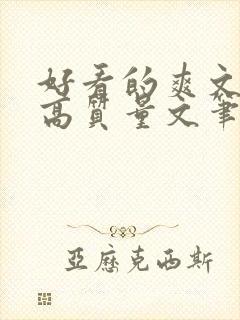 好看的爽文
高質量文筆
亞歷克西斯